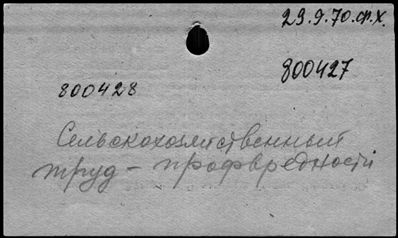 23.9.70.ср.х.
800427
800428
Сельскохозяйственный
труд – профвредности